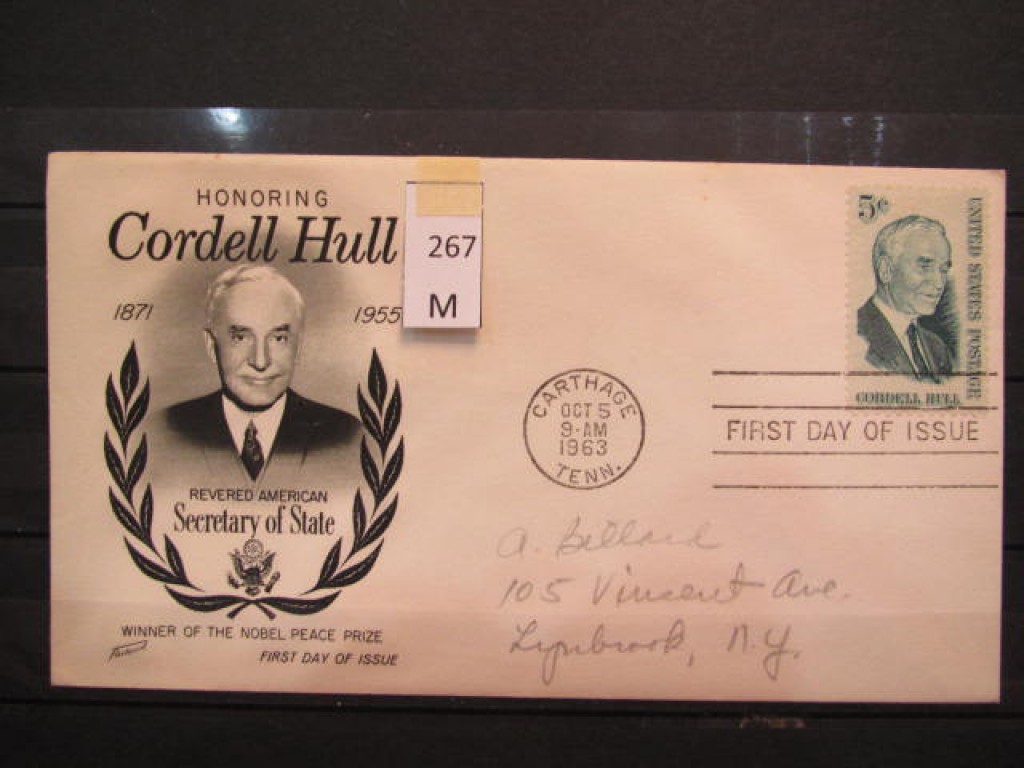 HONORING
Cordell Hull
1871 1955
REVERED AMERICAN
Secretary of State
WINNER OF THE NOBEL PEACE PRIZE
FIRST DAY OF ISSUE
267
M
CARTHAGE
OCT 5
9-AM
1963
TENN.
5¢
UNITED STATES POSTAGE
CORDELL HULL
FIRST DAY OF ISSUE
A. Billard
105 Vincent Ave.
Lynbrook, N.Y.